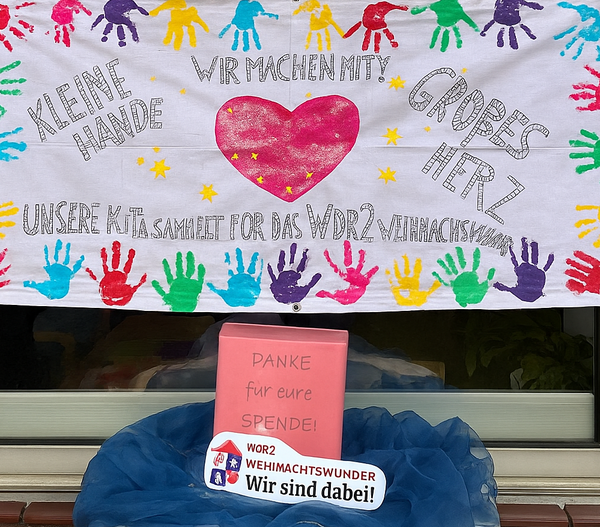 WIR MACHEN MIT!
KLEINE
HÄNDE
GROßES
HERZ
UNSERE KiTA SAMMELT FOR DAS WDR2 WEIHNACHSWUNDR
PANKE
für eure
SPENDE!
WOR2
WEHIMACHTSWUNDER
Wir sind dabei!